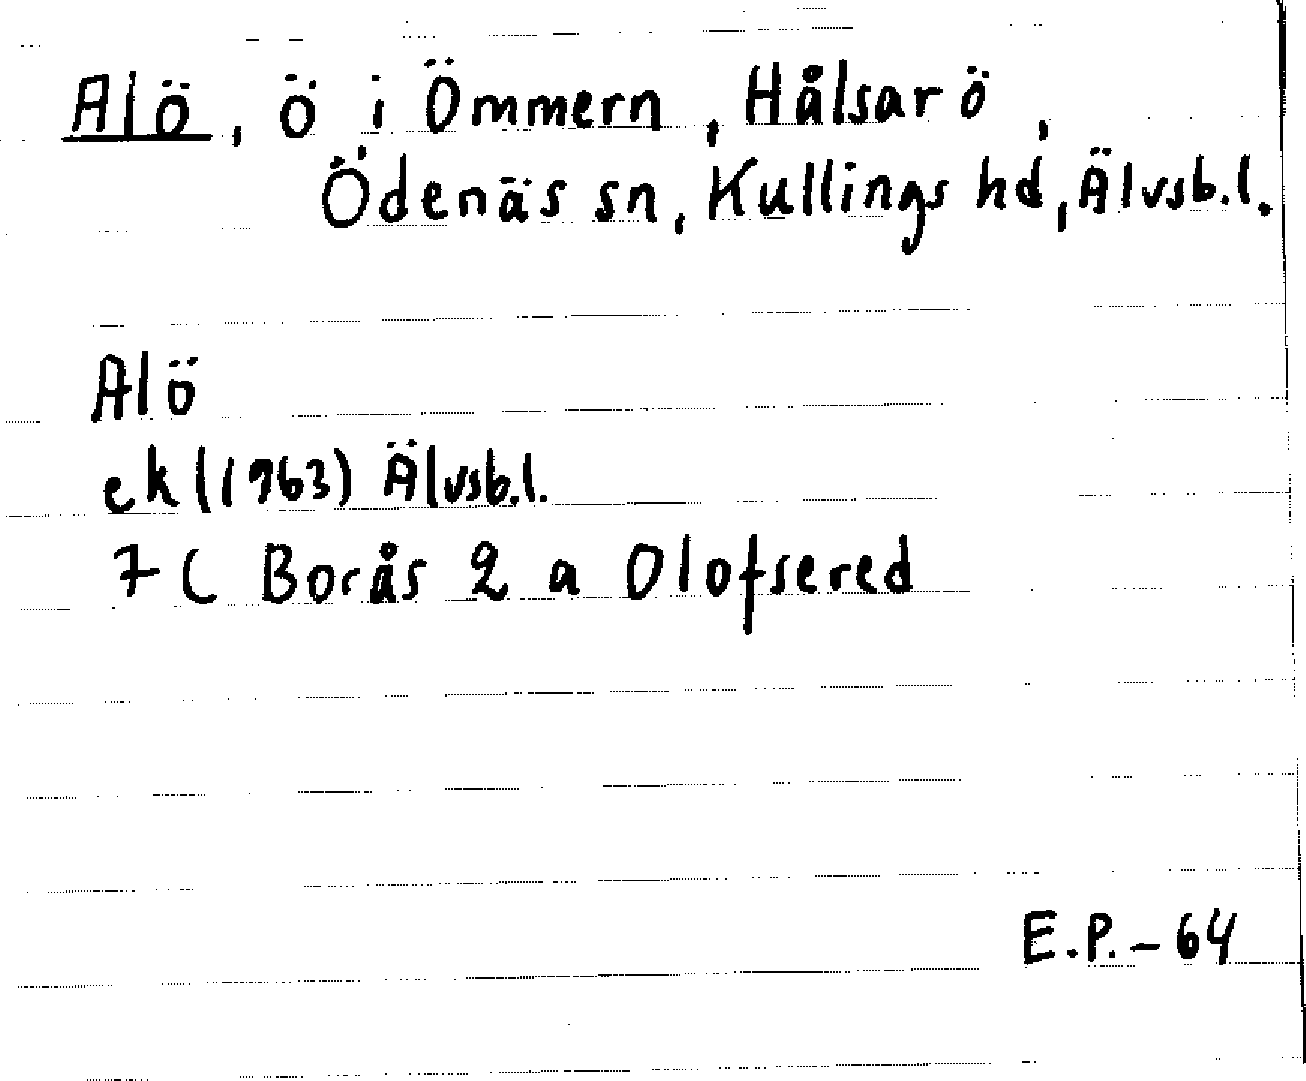 Alö, ö i Ömmern, Hålsarö,
Ödenäs sn, Kullings hd, Älvsb.l.
Alö
ek (1963) Älvsb.l.
7 C Borås 2 a Olofsered
E.P. - 64